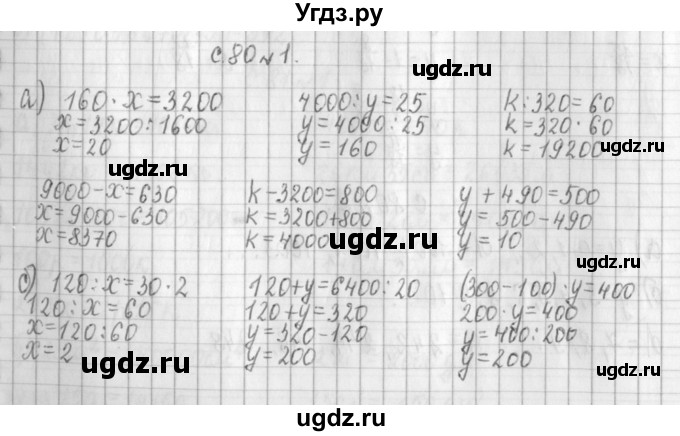 Угдз.ру
с.80 №1.
ugdz.ru
ugdz.ru
а) 160 · x = 3200
4000 : y = 25
k : 320 = 60
x = 3200 : 1600
y = 4000 : 25
k = 320 · 60
x = 20
y = 160
k = 19200
ugdz.ru
ugdz.ru
9000 - x = 630
k - 3200 = 800
y + 490 = 500
x = 9000 - 630
k = 3200 + 800
y = 500 - 490
x = 8370
k = 4000
y = 10
ugdz.ru
с) 120 : x = 30 · 2
120 + y = 6400 : 20
(300 - 100) · y = 400
120 : x = 60
120 + y = 320
200 · y = 400
x = 120 : 60
y = 320 - 120
y = 400 : 200
x = 2
y = 200
y = 200
ugdz.ru
ugdz.ru
ugdz.ru